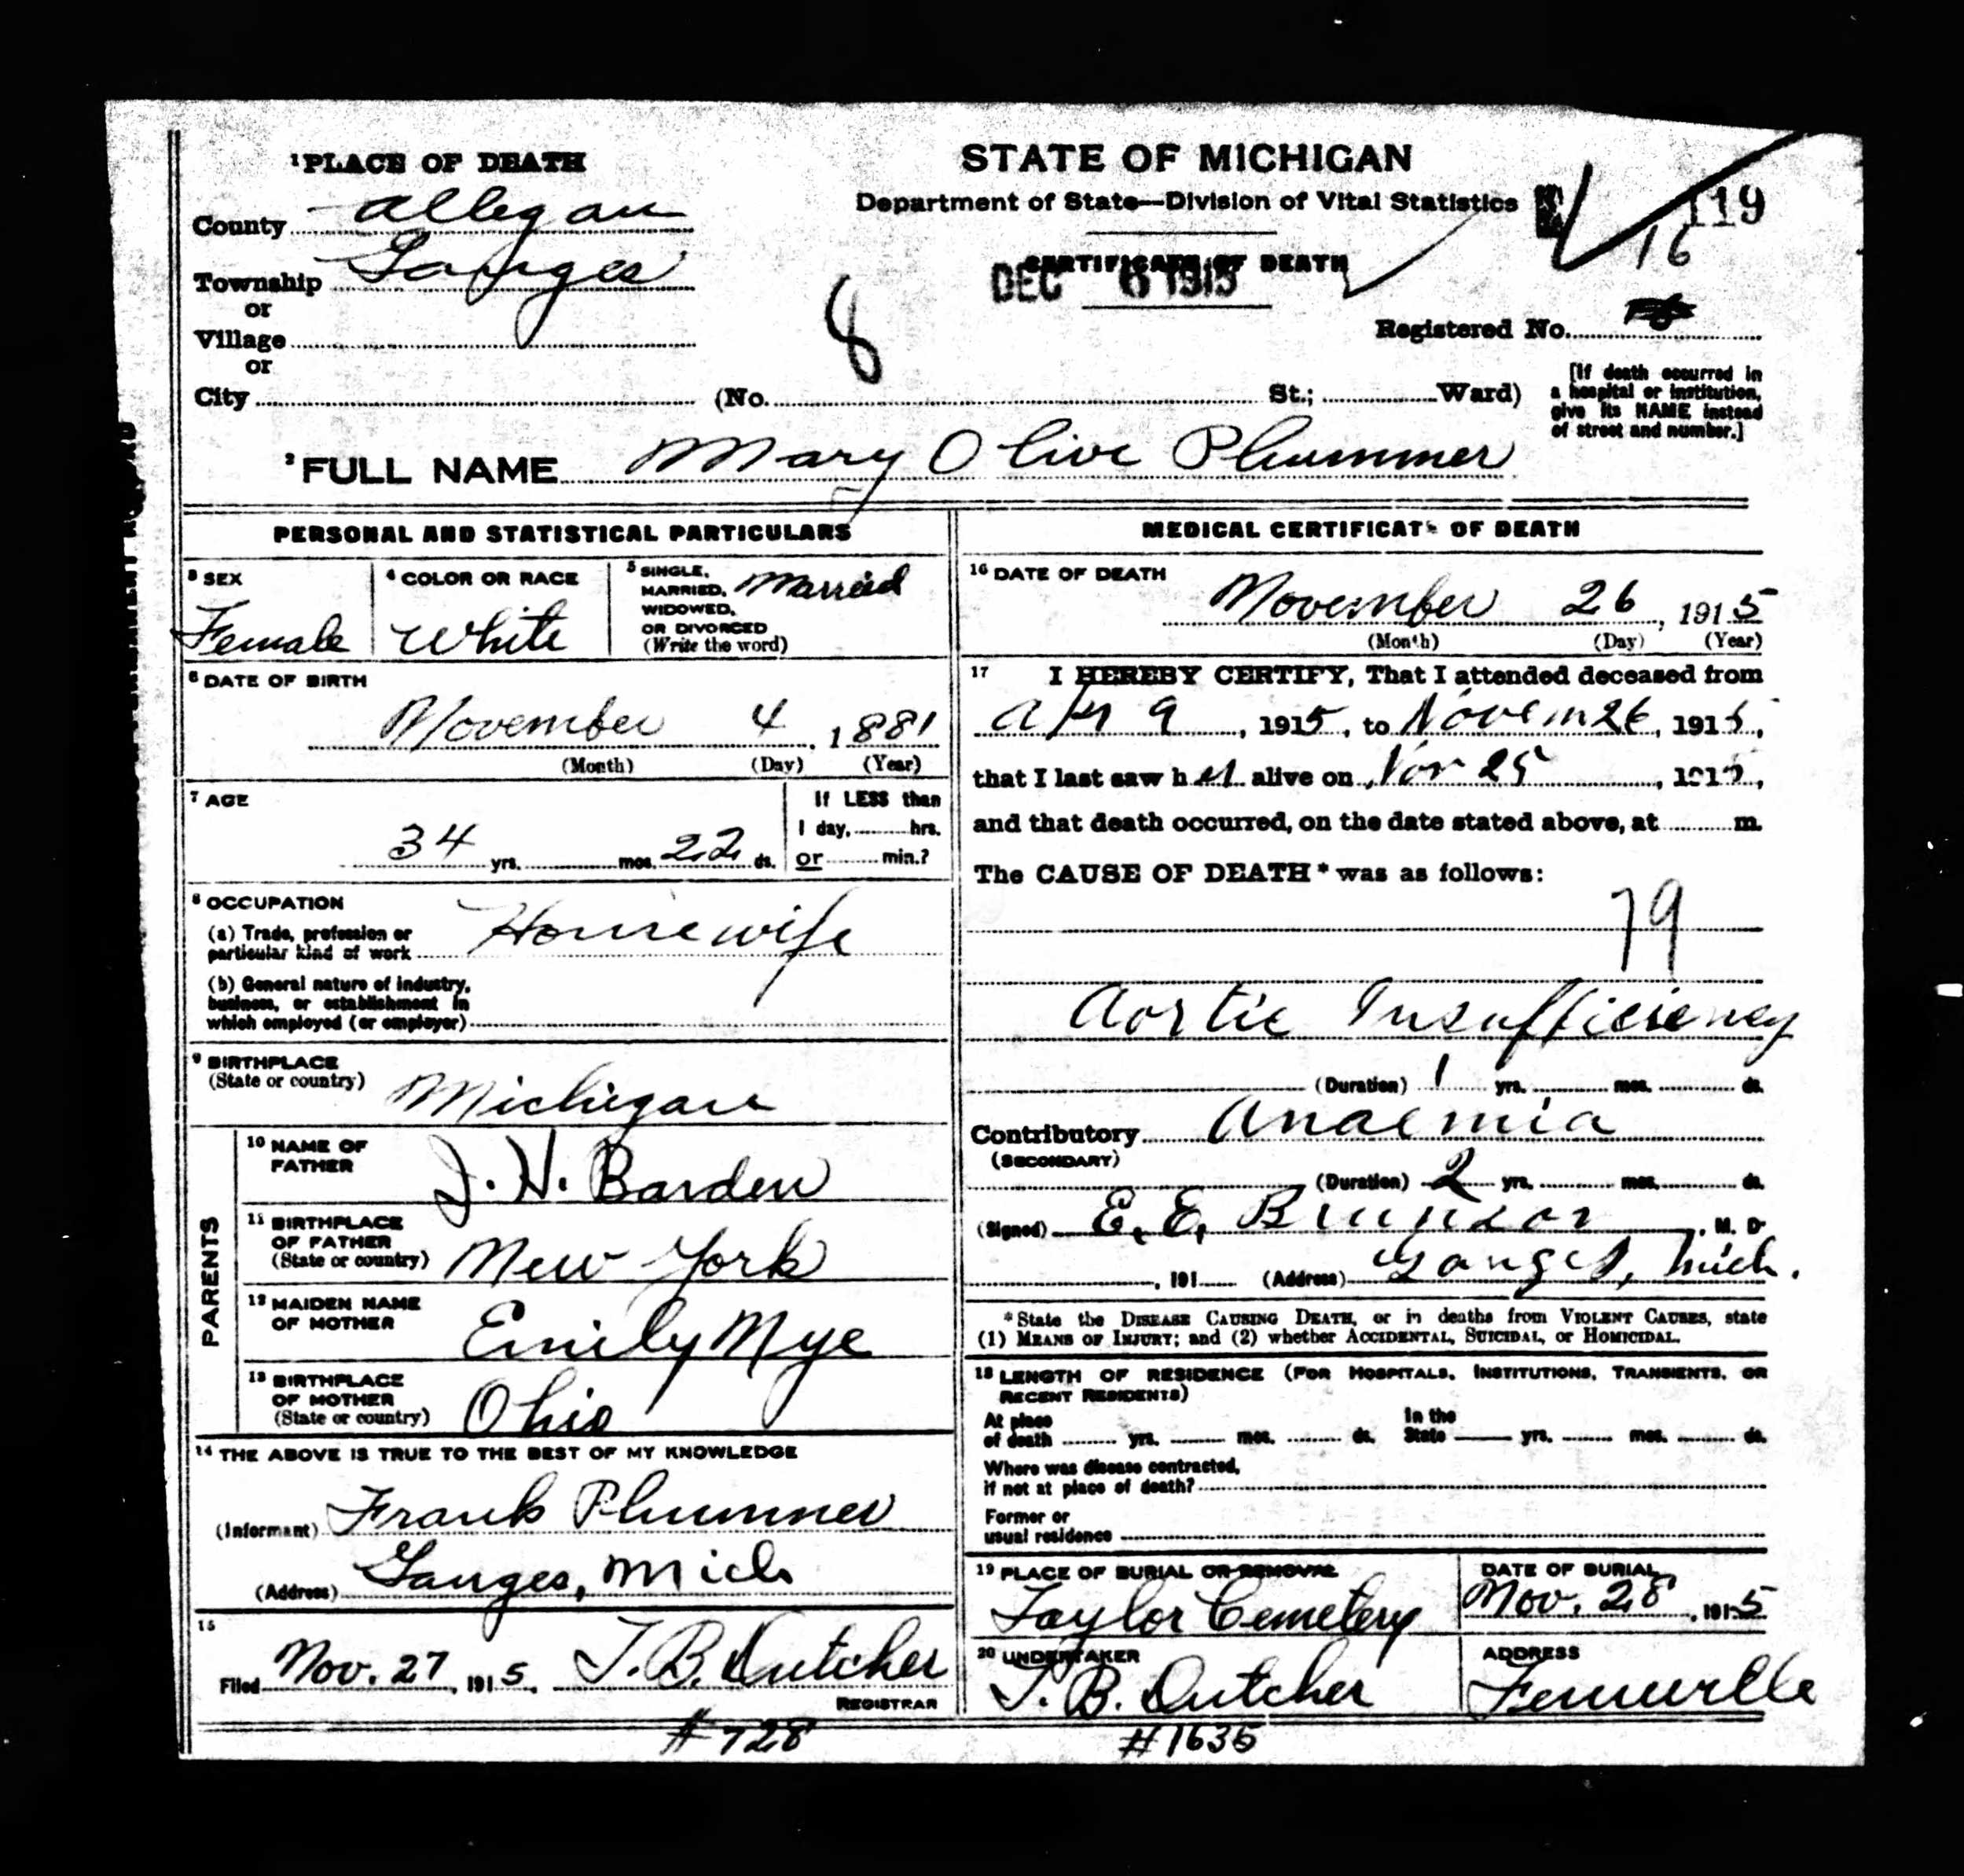 ¹PLACE OF DEATH
County Allegan
Township Ganges
or
Village
or
City
STATE OF MICHIGAN
Department of State—Division of Vital Statistics
119
16
CERTIFICATE OF DEATH
DEC 6 1915
8
Registered No.
(No. St.; Ward)
[If death occurred in
a hospital or institution,
give its NAME instead
of street and number.]
²FULL NAME Mary Olive Plummer
PERSONAL AND STATISTICAL PARTICULARS
³ SEX
Female
⁴ COLOR OR RACE
White
⁵ SINGLE,
MARRIED,
WIDOWED,
OR DIVORCED
(Write the word)
Married
⁶ DATE OF BIRTH
November 4, 1881
(Month) (Day) (Year)
⁷ AGE
34 yrs. mos. 22 ds.
If LESS than
1 day, hrs.
or min.?
⁸ OCCUPATION
(a) Trade, profession or
particular kind of work Housewife
(b) General nature of industry,
business, or establishment in
which employed (or employer)
⁹ BIRTHPLACE
(State or country)
Michigan
PARENTS
¹⁰ NAME OF
FATHER
J. H. Barden
¹¹ BIRTHPLACE
OF FATHER
(State or country)
New York
¹² MAIDEN NAME
OF MOTHER
Emily Nye
¹³ BIRTHPLACE
OF MOTHER
(State or country)
Ohio
¹⁴ THE ABOVE IS TRUE TO THE BEST OF MY KNOWLEDGE
(Informant) Frank Plummer
(Address) Ganges, Mich
¹⁵
Filed Nov. 27, 1915. T. B. Dutcher
REGISTRAR
#728
MEDICAL CERTIFICATE OF DEATH
¹⁶ DATE OF DEATH
November 26, 1915
(Month) (Day) (Year)
¹⁷ I HEREBY CERTIFY, That I attended deceased from
Apr 9, 1915, to Novem 26, 1915,
that I last saw her alive on Nov 25, 1915,
and that death occurred, on the date stated above, at m.
The CAUSE OF DEATH* was as follows:
79
Aortic Insufficiency
(Duration) 1 yrs. mos. ds.
Contributory Anaemia
(SECONDARY)
(Duration) 2 yrs. mos. ds.
(Signed) E. E. Brunson, M. D.
, 191 (Address) Ganges, Mich.
*State the DISEASE CAUSING DEATH, or in deaths from VIOLENT CAUSES, state
(1) MEANS OF INJURY; and (2) whether ACCIDENTAL, SUICIDAL, or HOMICIDAL.
¹⁸ LENGTH OF RESIDENCE (FOR HOSPITALS, INSTITUTIONS, TRANSIENTS, OR
RECENT RESIDENTS)
At place
of death yrs. mos. ds.
In the
State yrs. mos. ds.
Where was disease contracted,
if not at place of death?
Former or
usual residence
¹⁹ PLACE OF BURIAL OR REMOVAL
Taylor Cemetery
DATE OF BURIAL
Nov. 28, 1915
²⁰ UNDERTAKER
T. B. Dutcher
ADDRESS
Fennville
#1635